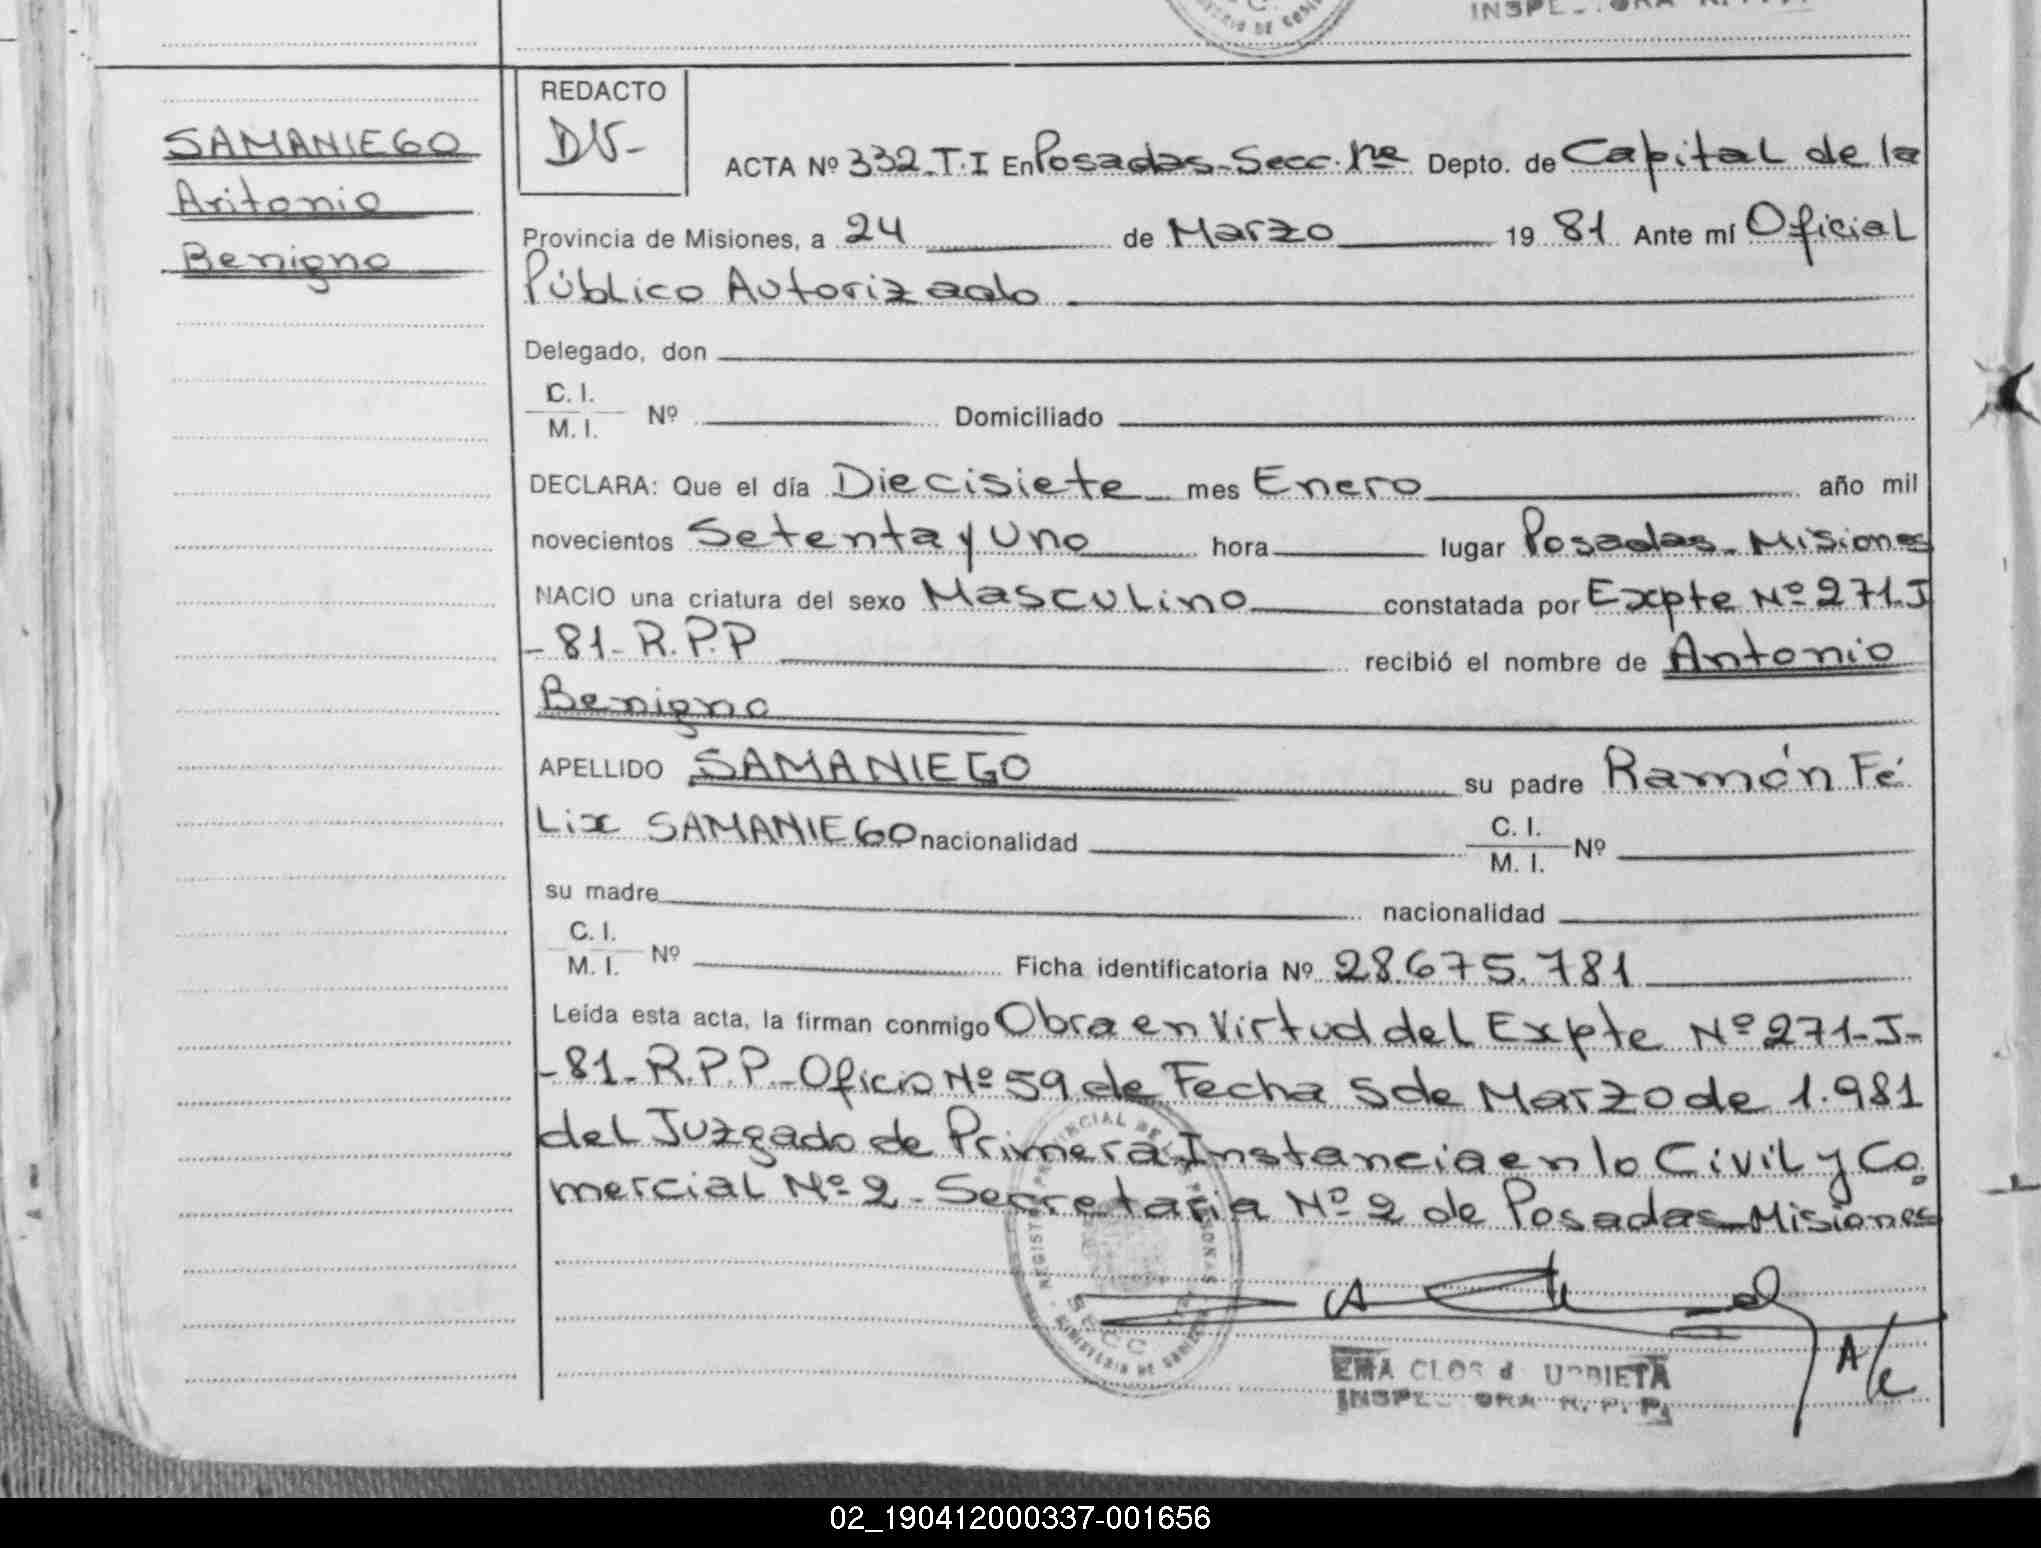 SAMANIEGO
Antonio
Benigno
REDACTO
DV-
ACTA Nº 332-T.I En Posadas-Secc.1ra Depto. de Capital de la
Provincia de Misiones, a 24 de Marzo 1981 Ante mí Oficial
Público Autorizado
Delegado, don
C. I.
M. I. Nº Domiciliado
DECLARA: Que el día Diecisiete mes Enero año mil
novecientos Setenta y Uno hora lugar Posadas-Misiones
NACIO una criatura del sexo Masculino constatada por Expte Nº 271-J
-81-R.P.P recibió el nombre de Antonio
Benigno
APELLIDO SAMANIEGO su padre Ramón Fé
Lix SAMANIEGO nacionalidad C. I.
M. I. Nº
su madre nacionalidad
C. I.
M. I. Nº Ficha identificatoria Nº 28.675.781
Leída esta acta, la firman conmigo Obra en Virtud del Expte Nº 271-J-
-81-R.P.P-Oficio Nº 59 de Fecha 5 de Marzo de 1.981
del Juzgado de Primera Instancia en lo Civil y Co
mercial Nº 2-Secretaria Nº 2 de Posadas-Misiones
REGISTRO PROVINCIAL DE LAS PERSONAS
SECC
MINISTERIO DE GOBIERNO
EMA CLOS d URRIETA
INSPECTORA R. P. P.
A/c
02_190412000337-001656